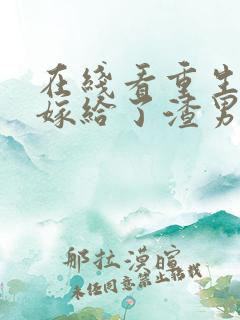 在线看重生
嫁给了渣男
那拉漠暄
未经同意禁止转载